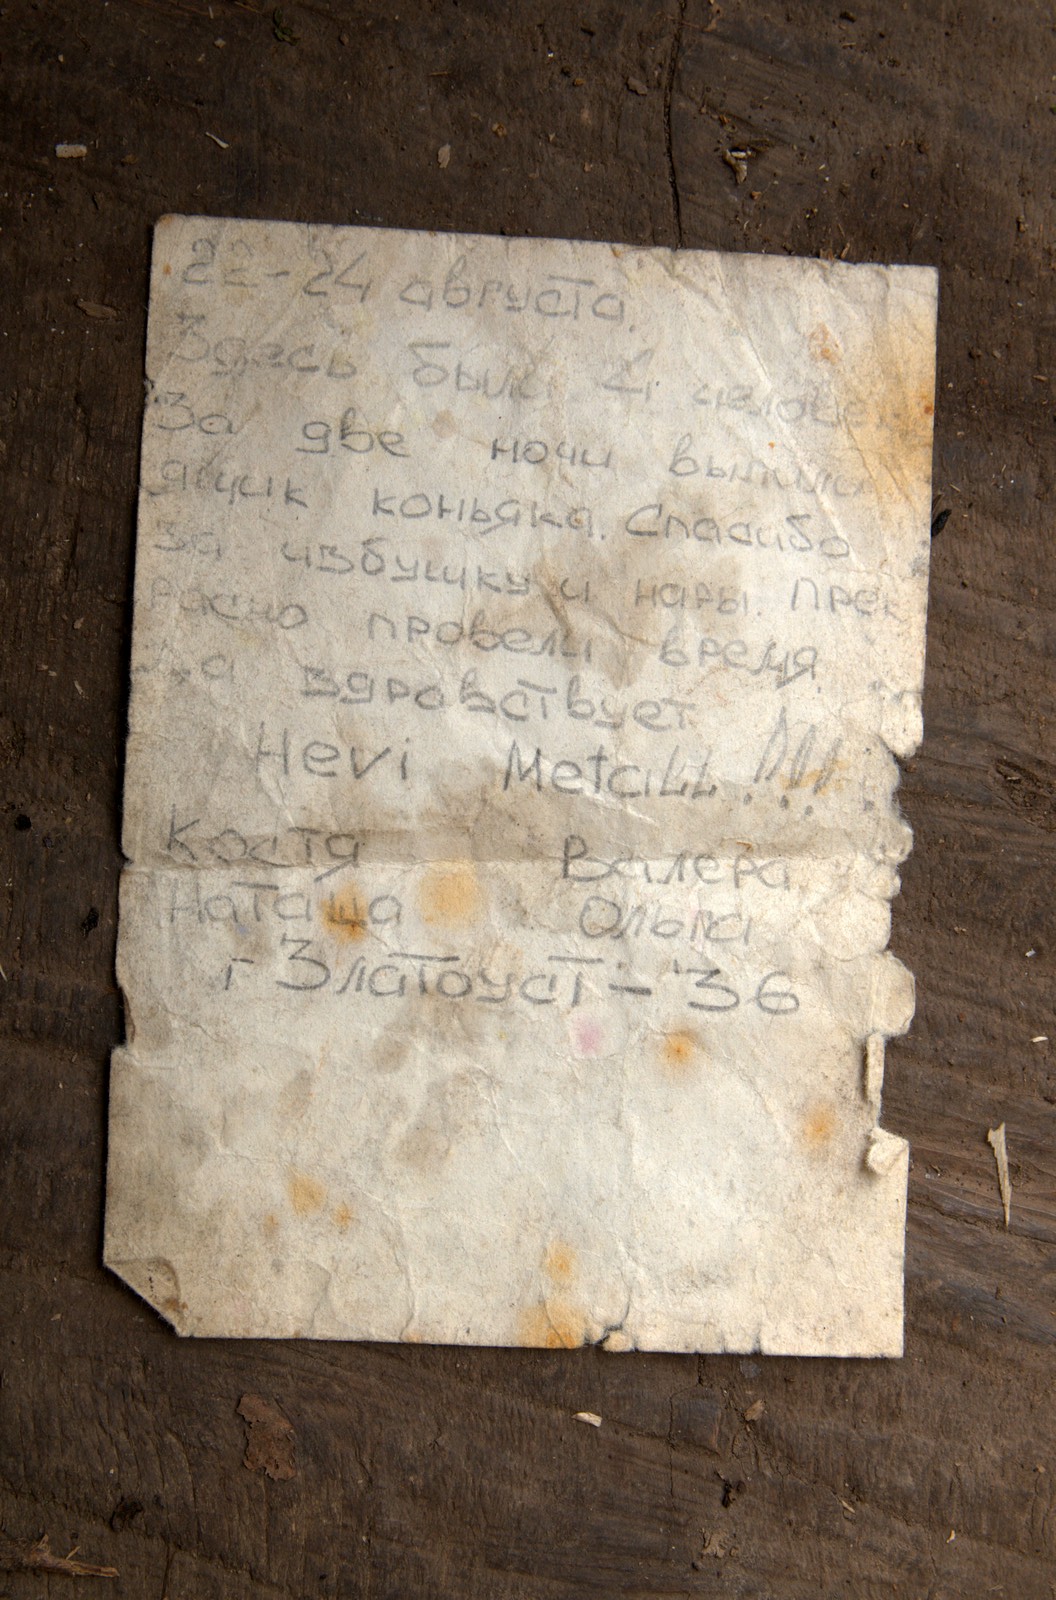 22-24 августа.
Здесь были 4 человека
За две ночи выпили
ящик коньяка. Спасибо
за избушку и нары. Прек
расно провели время.
Да здравствует
Hevi Metall!!!
Костя Валера
Наташа Ольга
г Златоуст - 36